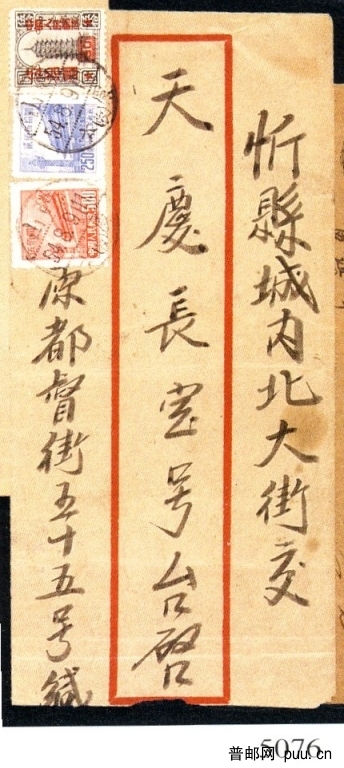 忻縣城内北大街交
天慶長寶号台啓
原都督街五十五号緘
250
5076
普邮网 puu.cn